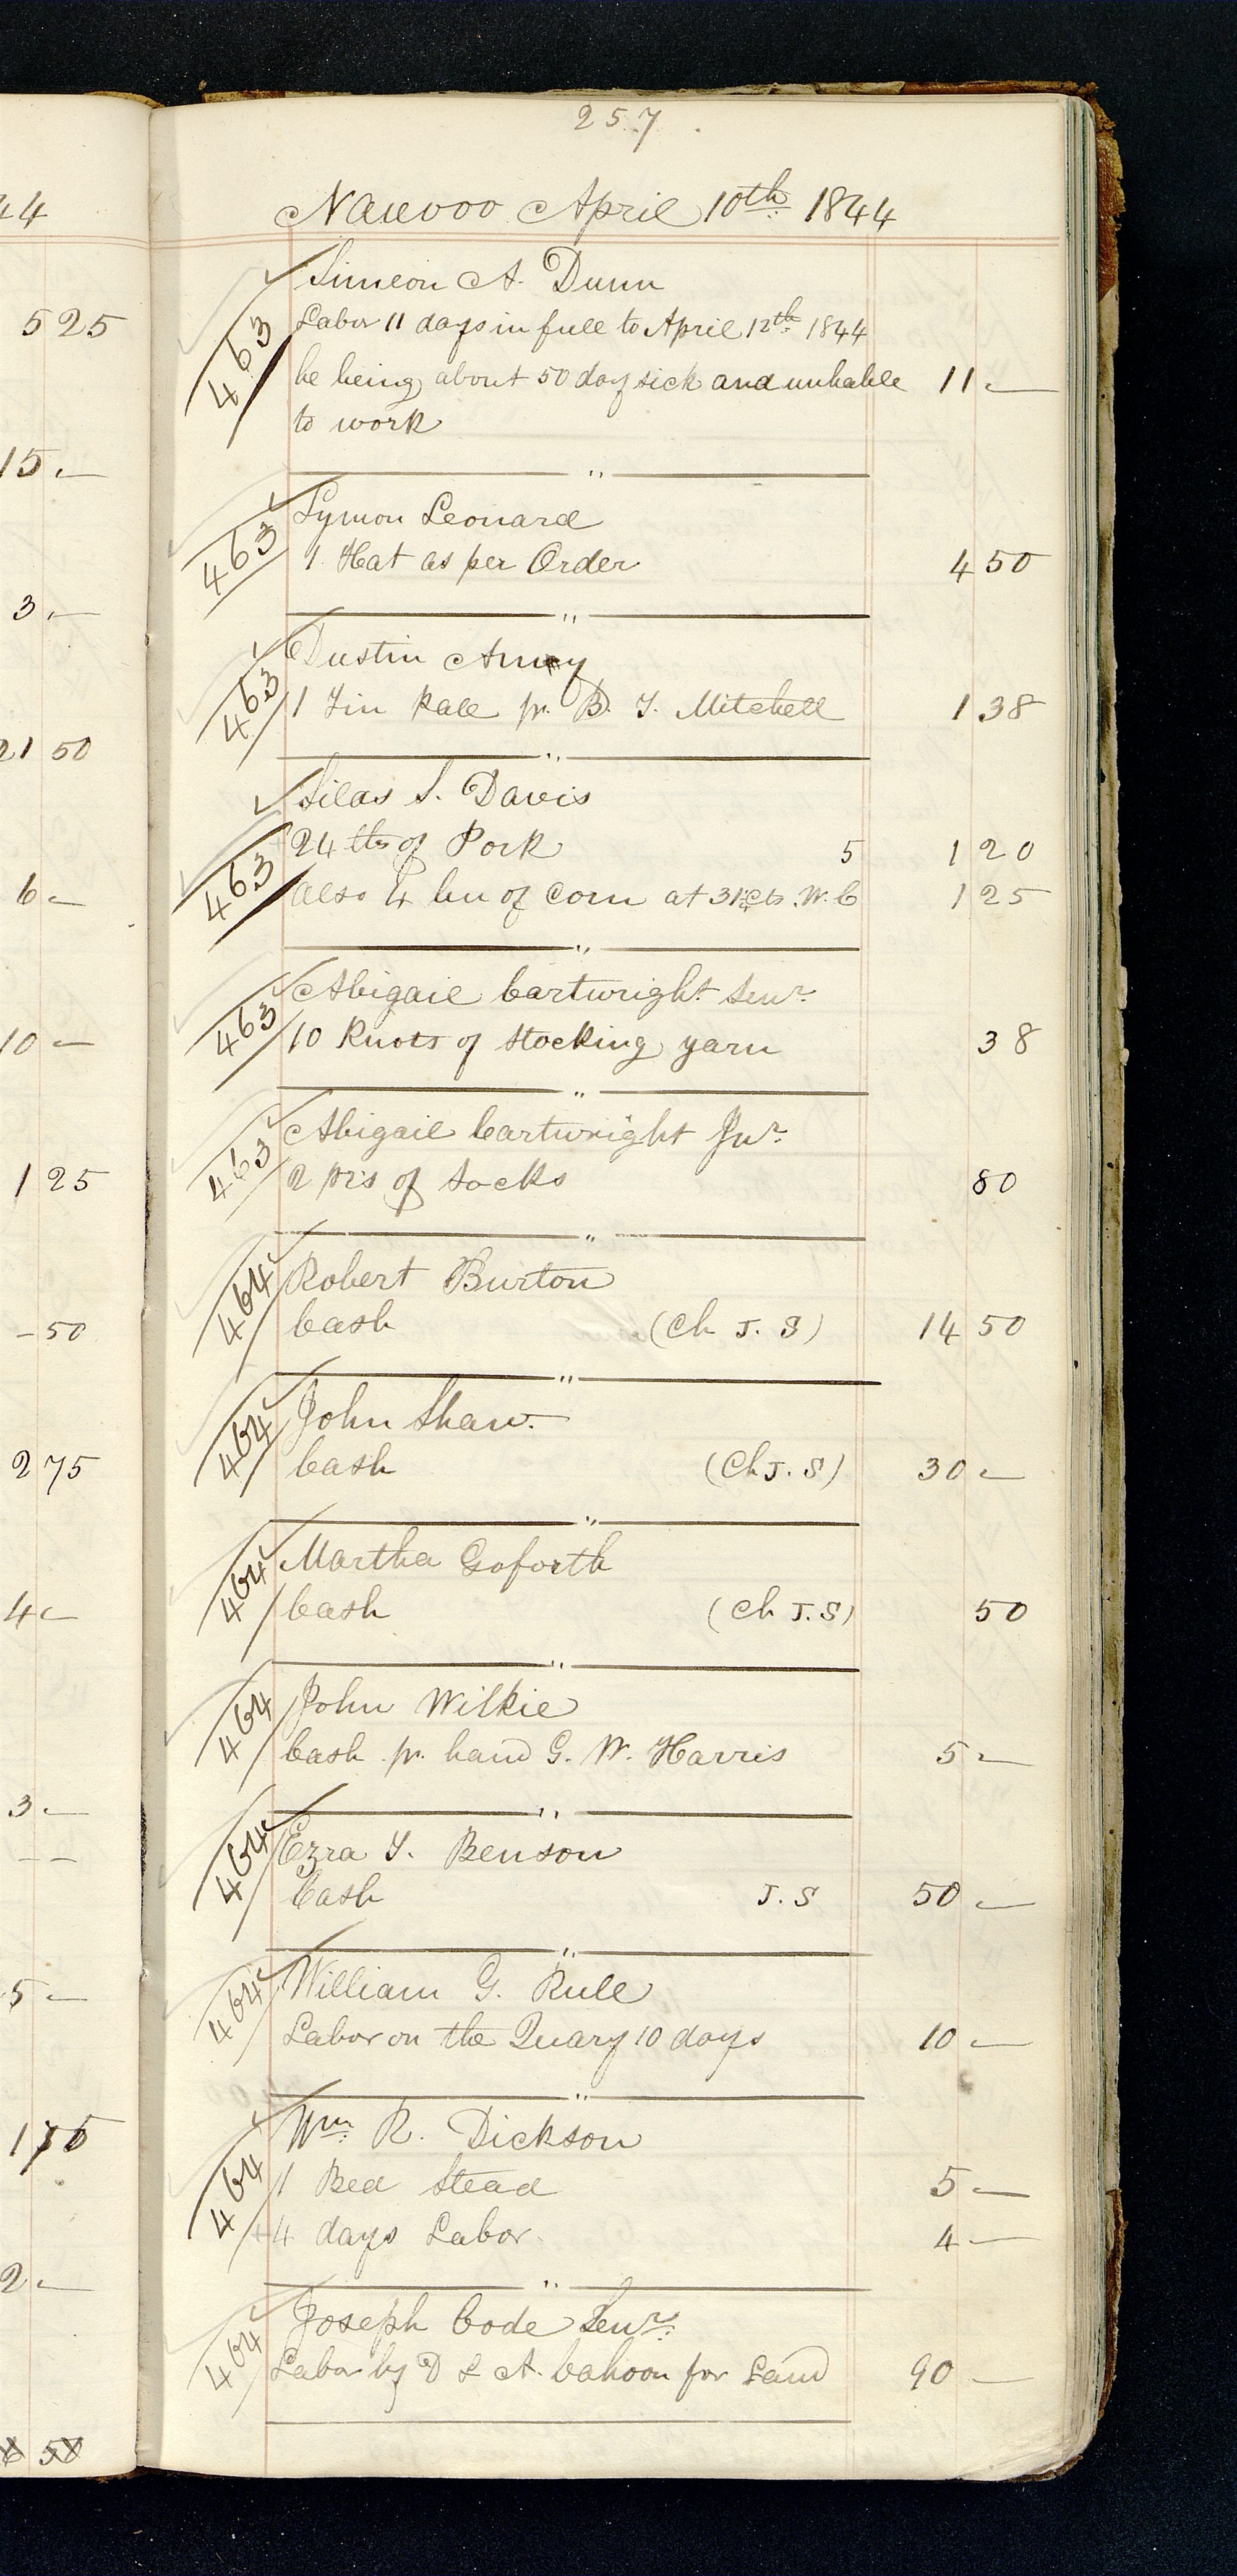 44
525
15 -
3 -
21 50
6 -
10 -
1 25
- 50
2 75
4 -
3 -
- -
5 -
2 -
6 50
257
Nauvoo April 10th 1844
463 Simeon A. Dunn
Labor 11 days in full to April 12th 1844
he being about 50 day sick and unhable 11 -
to work
463 Lymon Leonard
1 Hat as per Order 4 50
463 Dustin Amy
1 Tin Pale pr. B. T. Mitchell 1 38
463 Silas S. Davis
24 lbs of Pork 5 1 20
also 4 bu of Corn at 31¼cts W. C 1 25
463 Abigail Cartwright Senr.
10 Knots of Stocking yarn 38
463 Abigail Cartwright Jnr.
2 prs of Socks 80
464 Robert Burton
Cash (Ch J. S) 14 50
464 John Shaw.
Cash (Ch J. S) 30 -
464 Martha Goforth
Cash (Ch J. S) 50
464 John Wilkie
Cash pr. hand G. W. Harris 5 -
464 Ezra T. Benson
Cash J. S 50 -
464 William G. Rule
Labor on the Quary 10 days 10 -
464 Wm. R. Dickson
1 Bed Stead 5 -
4 days Labor. 4 -
464 Joseph Code Senr.
Labor by D & A. Cahoon for Land 90 -